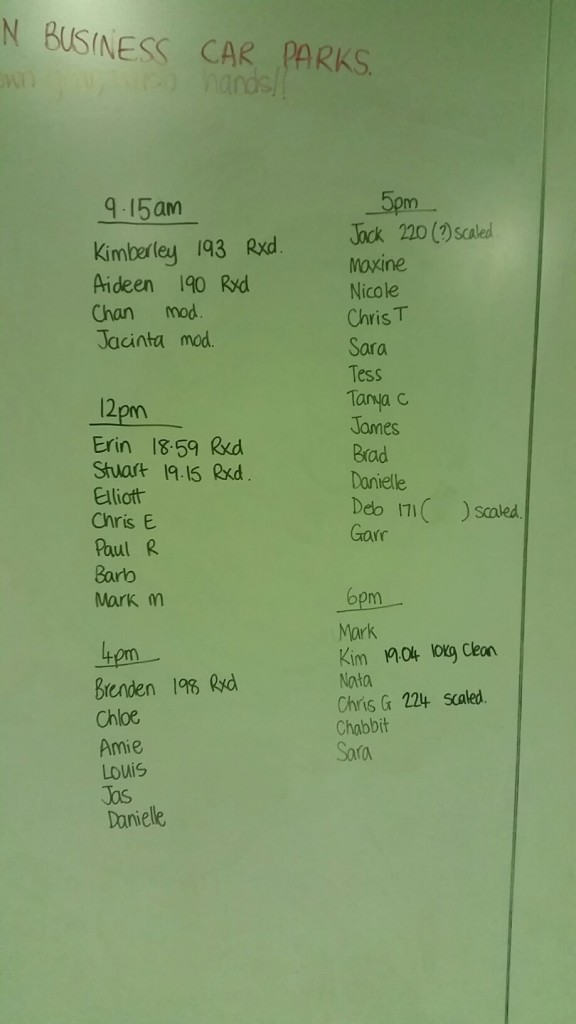 N BUSINESS CAR PARKS.
hands!!
9.15am
Kimberley 193 Rxd.
Aideen 190 Rxd
Chan mod.
Jacinta mod.
12pm
Erin 18.59 Rxd
Stuart 19.15 Rxd.
Elliott
Chris E
Paul R
Barb
Mark M
4pm
Brenden 198 Rxd
Chloe
Amie
Louis
Jas
Danielle
5pm
Jack 220 (?) scaled
Maxine
Nicole
Chris T
Sara
Tess
Tanya C
James
Brad
Danielle
Deb 171 ( ) scaled.
Garr
6pm
Mark
Kim 19.04 10kg Clean
Nata
Chris G 224 scaled.
Chabbit
Sara